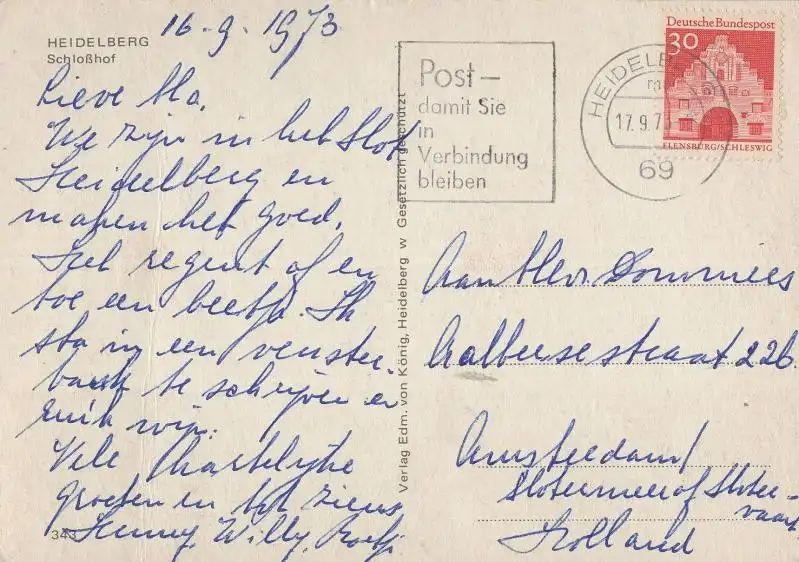 16-9-1973
HEIDELBERG
Schloßhof
Lieve Ma.
We zijn in het Slot
Heidelberg en
maken het goed.
Het regent af en
toe een beetje. Ik
sta in een venster-
bank te schrijven en
wij.
Vele Hartelijke
groeten en tot ziens
Henny, Willy,
343
Verlag Edm. von König, Heidelberg w Gesetzlich geschützt
Post —
damit Sie
in
Verbindung
bleiben
HEIDELBE
17.9.7
69
Deutsche Bundespost
30
FLENSBURG/SCHLESWIG
Aan Mevr Dommies
Aalbersestraat 226
Amsterdam/
Slotermeer of Sloter-
vaart
Holland